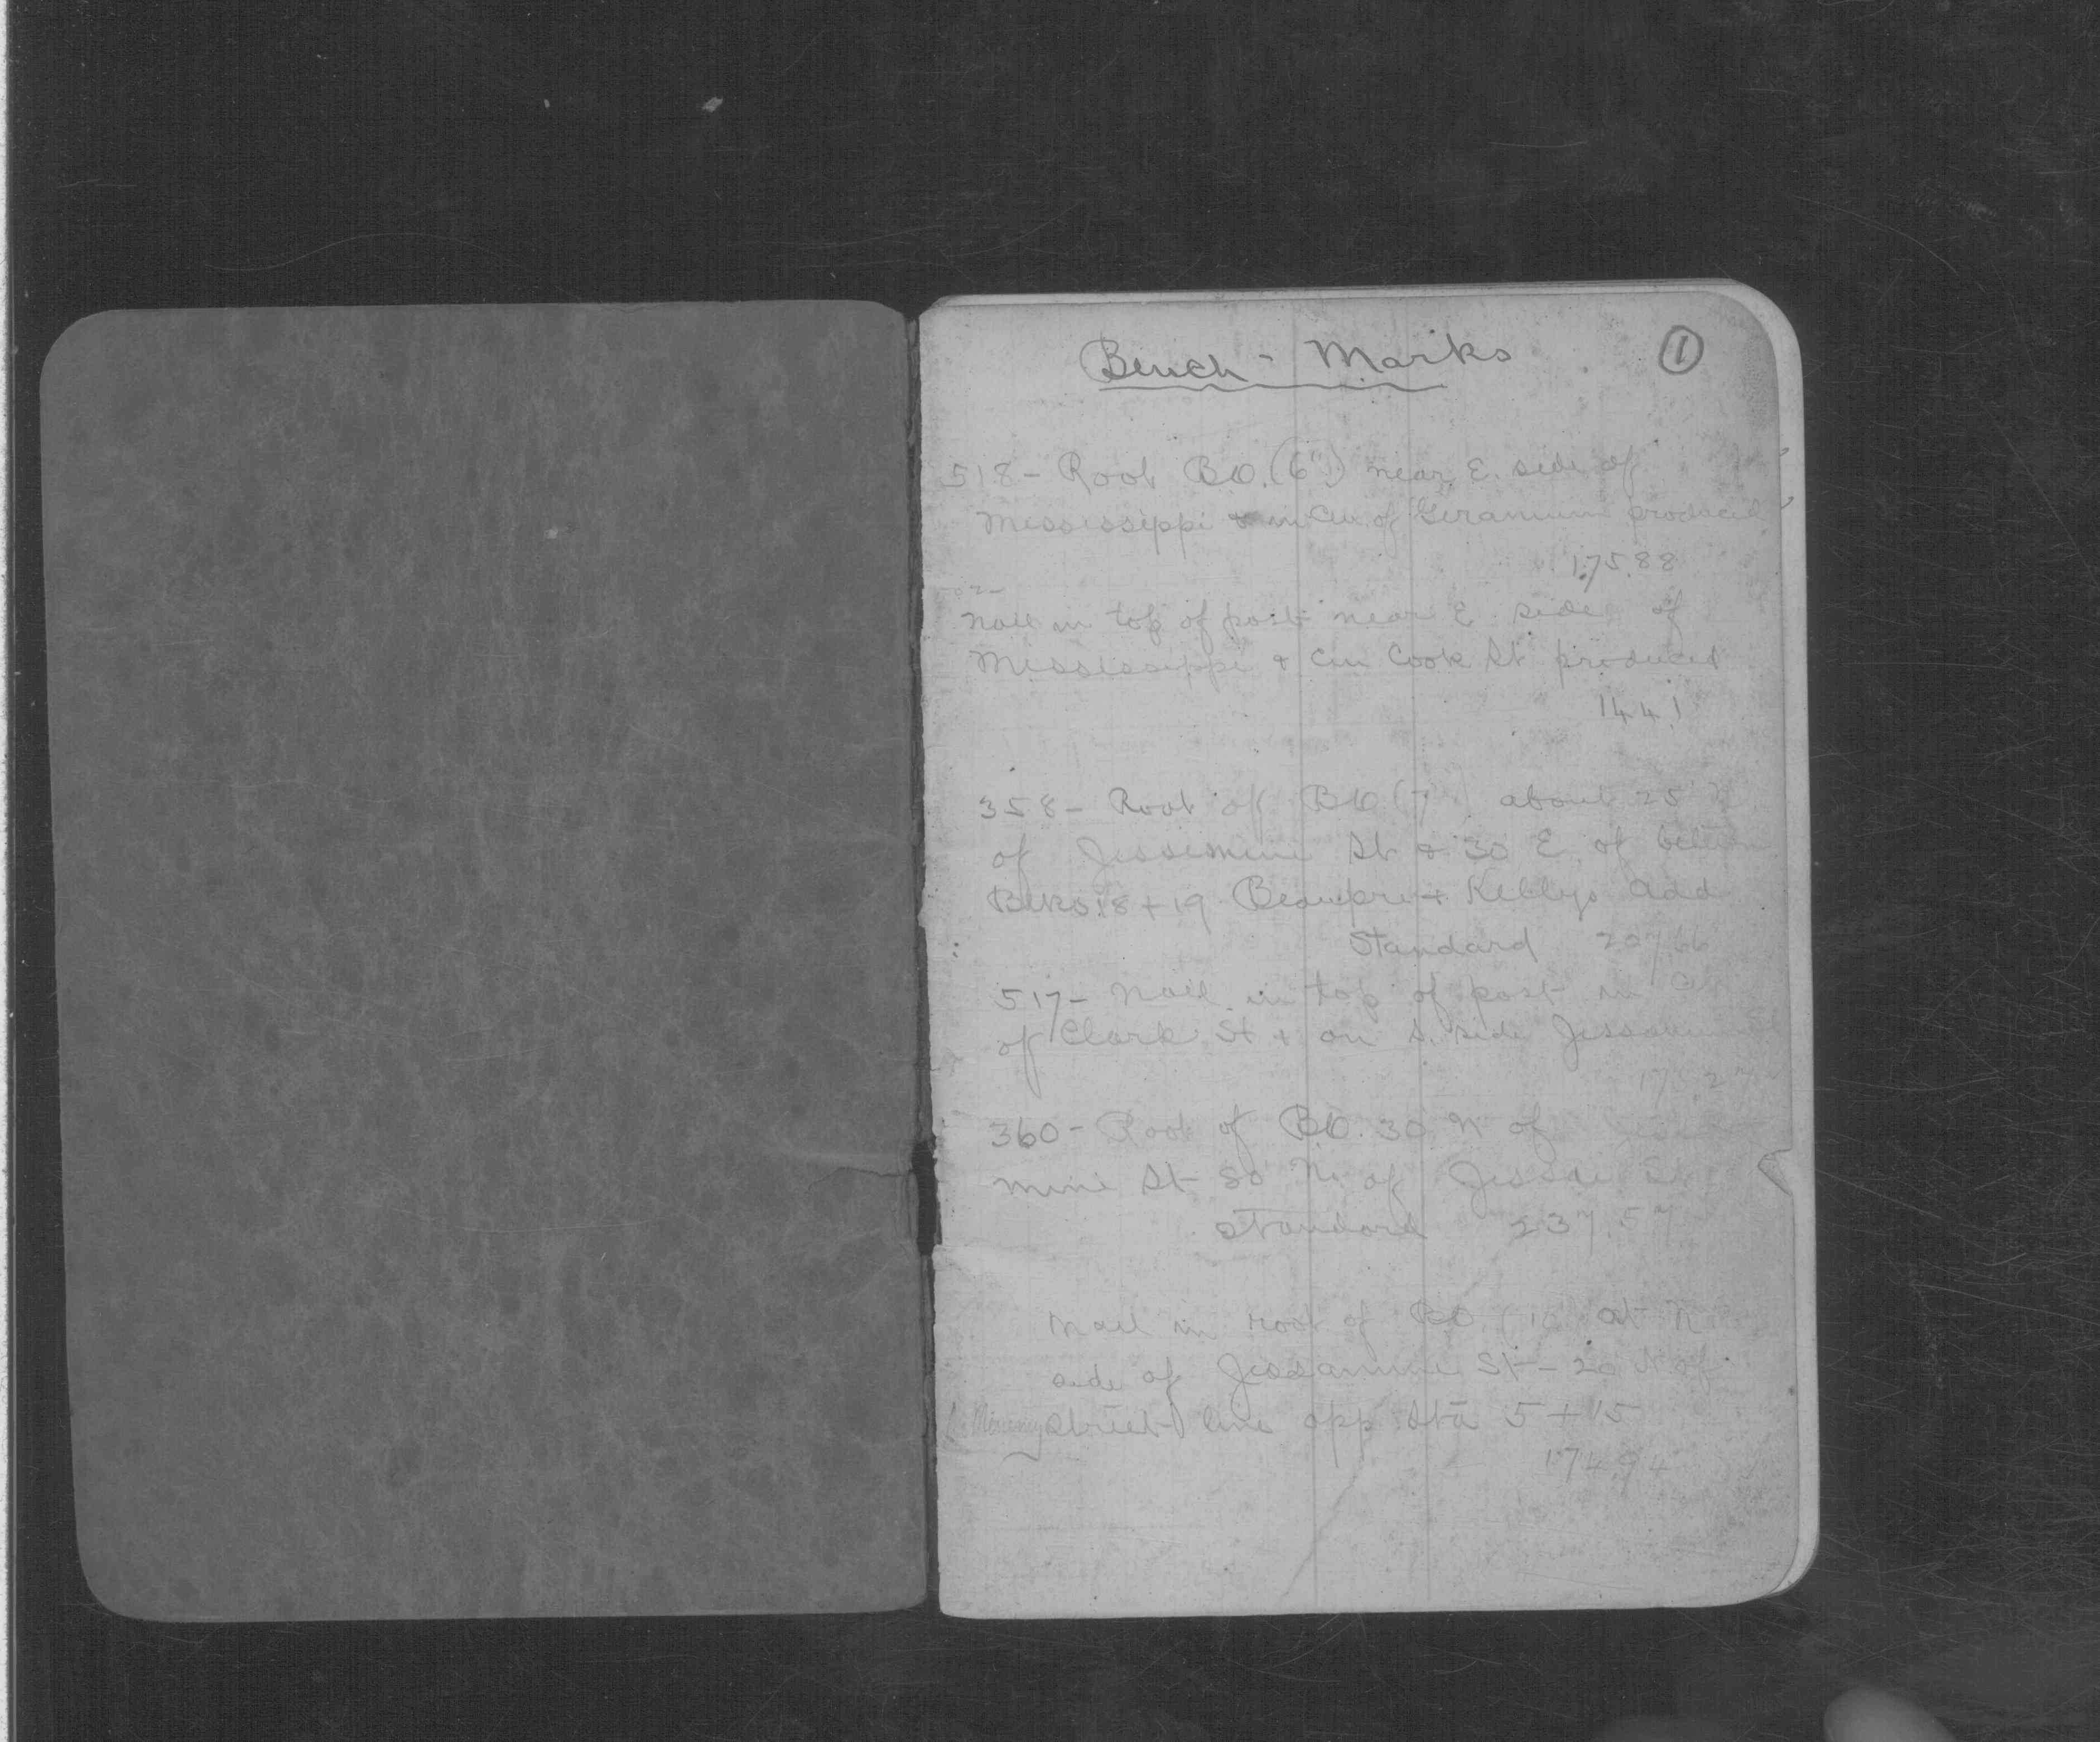 Bench - Marks ①
518 - Root B.O. (6") near E. side of
Mississippi & in Cen. of Geranium produced
175.88
Nail in top of post near E. side of
Mississippi & Cen Cook St produced
144.1
358 - Root of B.O. (7") about 25' N
of Jessemine St & 30 E. of between
Blks. 18 + 19 Beaupre + Kellys Add
Standard 207.66
517 - Nail in top of post in Cen
of Clark St + on S. side
175.27
360 - Root of B.O. 30 N of
mine St 80 N. of
Standard 237.57
Nail in root of B.O. (10 at N
side of Jessamine St - 20 N of
street line opp Sta 5 + 15
174.94